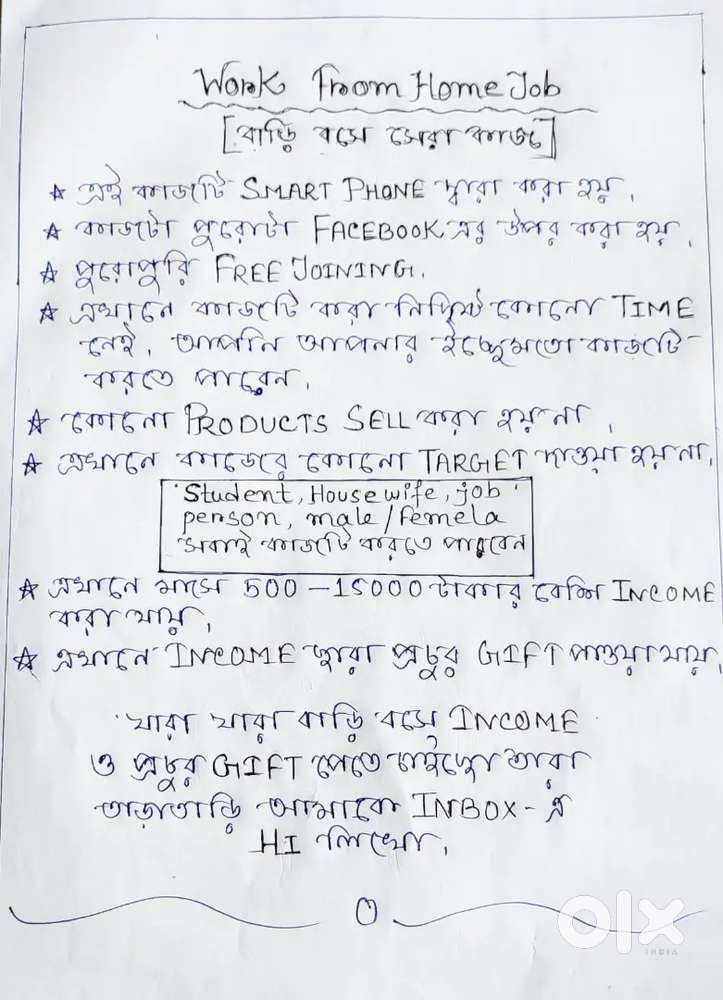 Work From Home Job
[বাড়ি বসে সেরা কাজ]
☆ এই কাজটি SMART PHONE দ্বারা করা হয়।
☆ কাজটা পুরোটা FACEBOOK এর উপর করা হয়।
☆ পুরোপুরি FREE JOINING.
☆ এখানে কাজটি করা নির্দিষ্ট কোনো TIME
নেই। আপনি আপনার ইচ্ছেমতো কাজটি
করতে পারেন।
☆ কোনো PRODUCTS SELL করা হয় না।
☆ এখানে কাজের কোনো TARGET দাওয়া হয় না।
Student, House wife, job
person, male/femela
সবাই কাজটি করতে পারবেন
☆ এখানে মাসে 500 - 15000 টাকার বেশি INCOME
করা যায়।
☆ এখানে INCOME দ্বারা প্রচুর GIFT পাওয়া যায়।
যারা যারা বাড়ি বসে INCOME
ও প্রচুর GIFT পেতে চাইছো তারা
তাড়াতাড়ি আমাকে INBOX-এ
HI লিখো।
olx
INDIA